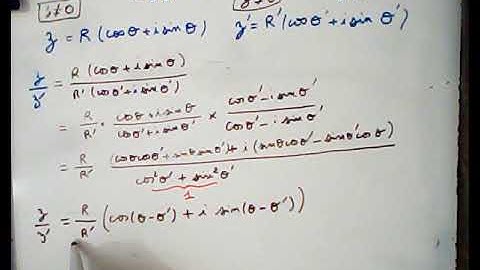 z ≠ 0
z = R (cosθ + i sin θ) z' = R' (cosθ' + i sin θ')
z/z' = R (cosθ + i sinθ) / R' (cosθ' + i sinθ')
= R/R' · (cosθ + i sinθ)/(cosθ' + i sinθ') × (cosθ' − i sinθ')/(cosθ' − i sinθ')
= R/R' ((cosθcosθ' + sinθ sinθ') + i (sinθcosθ' − sinθ'cosθ))/(cos²θ' + sin²θ')
1
z/z' = R/R' (cos(θ-θ') + i sin(θ-θ'))